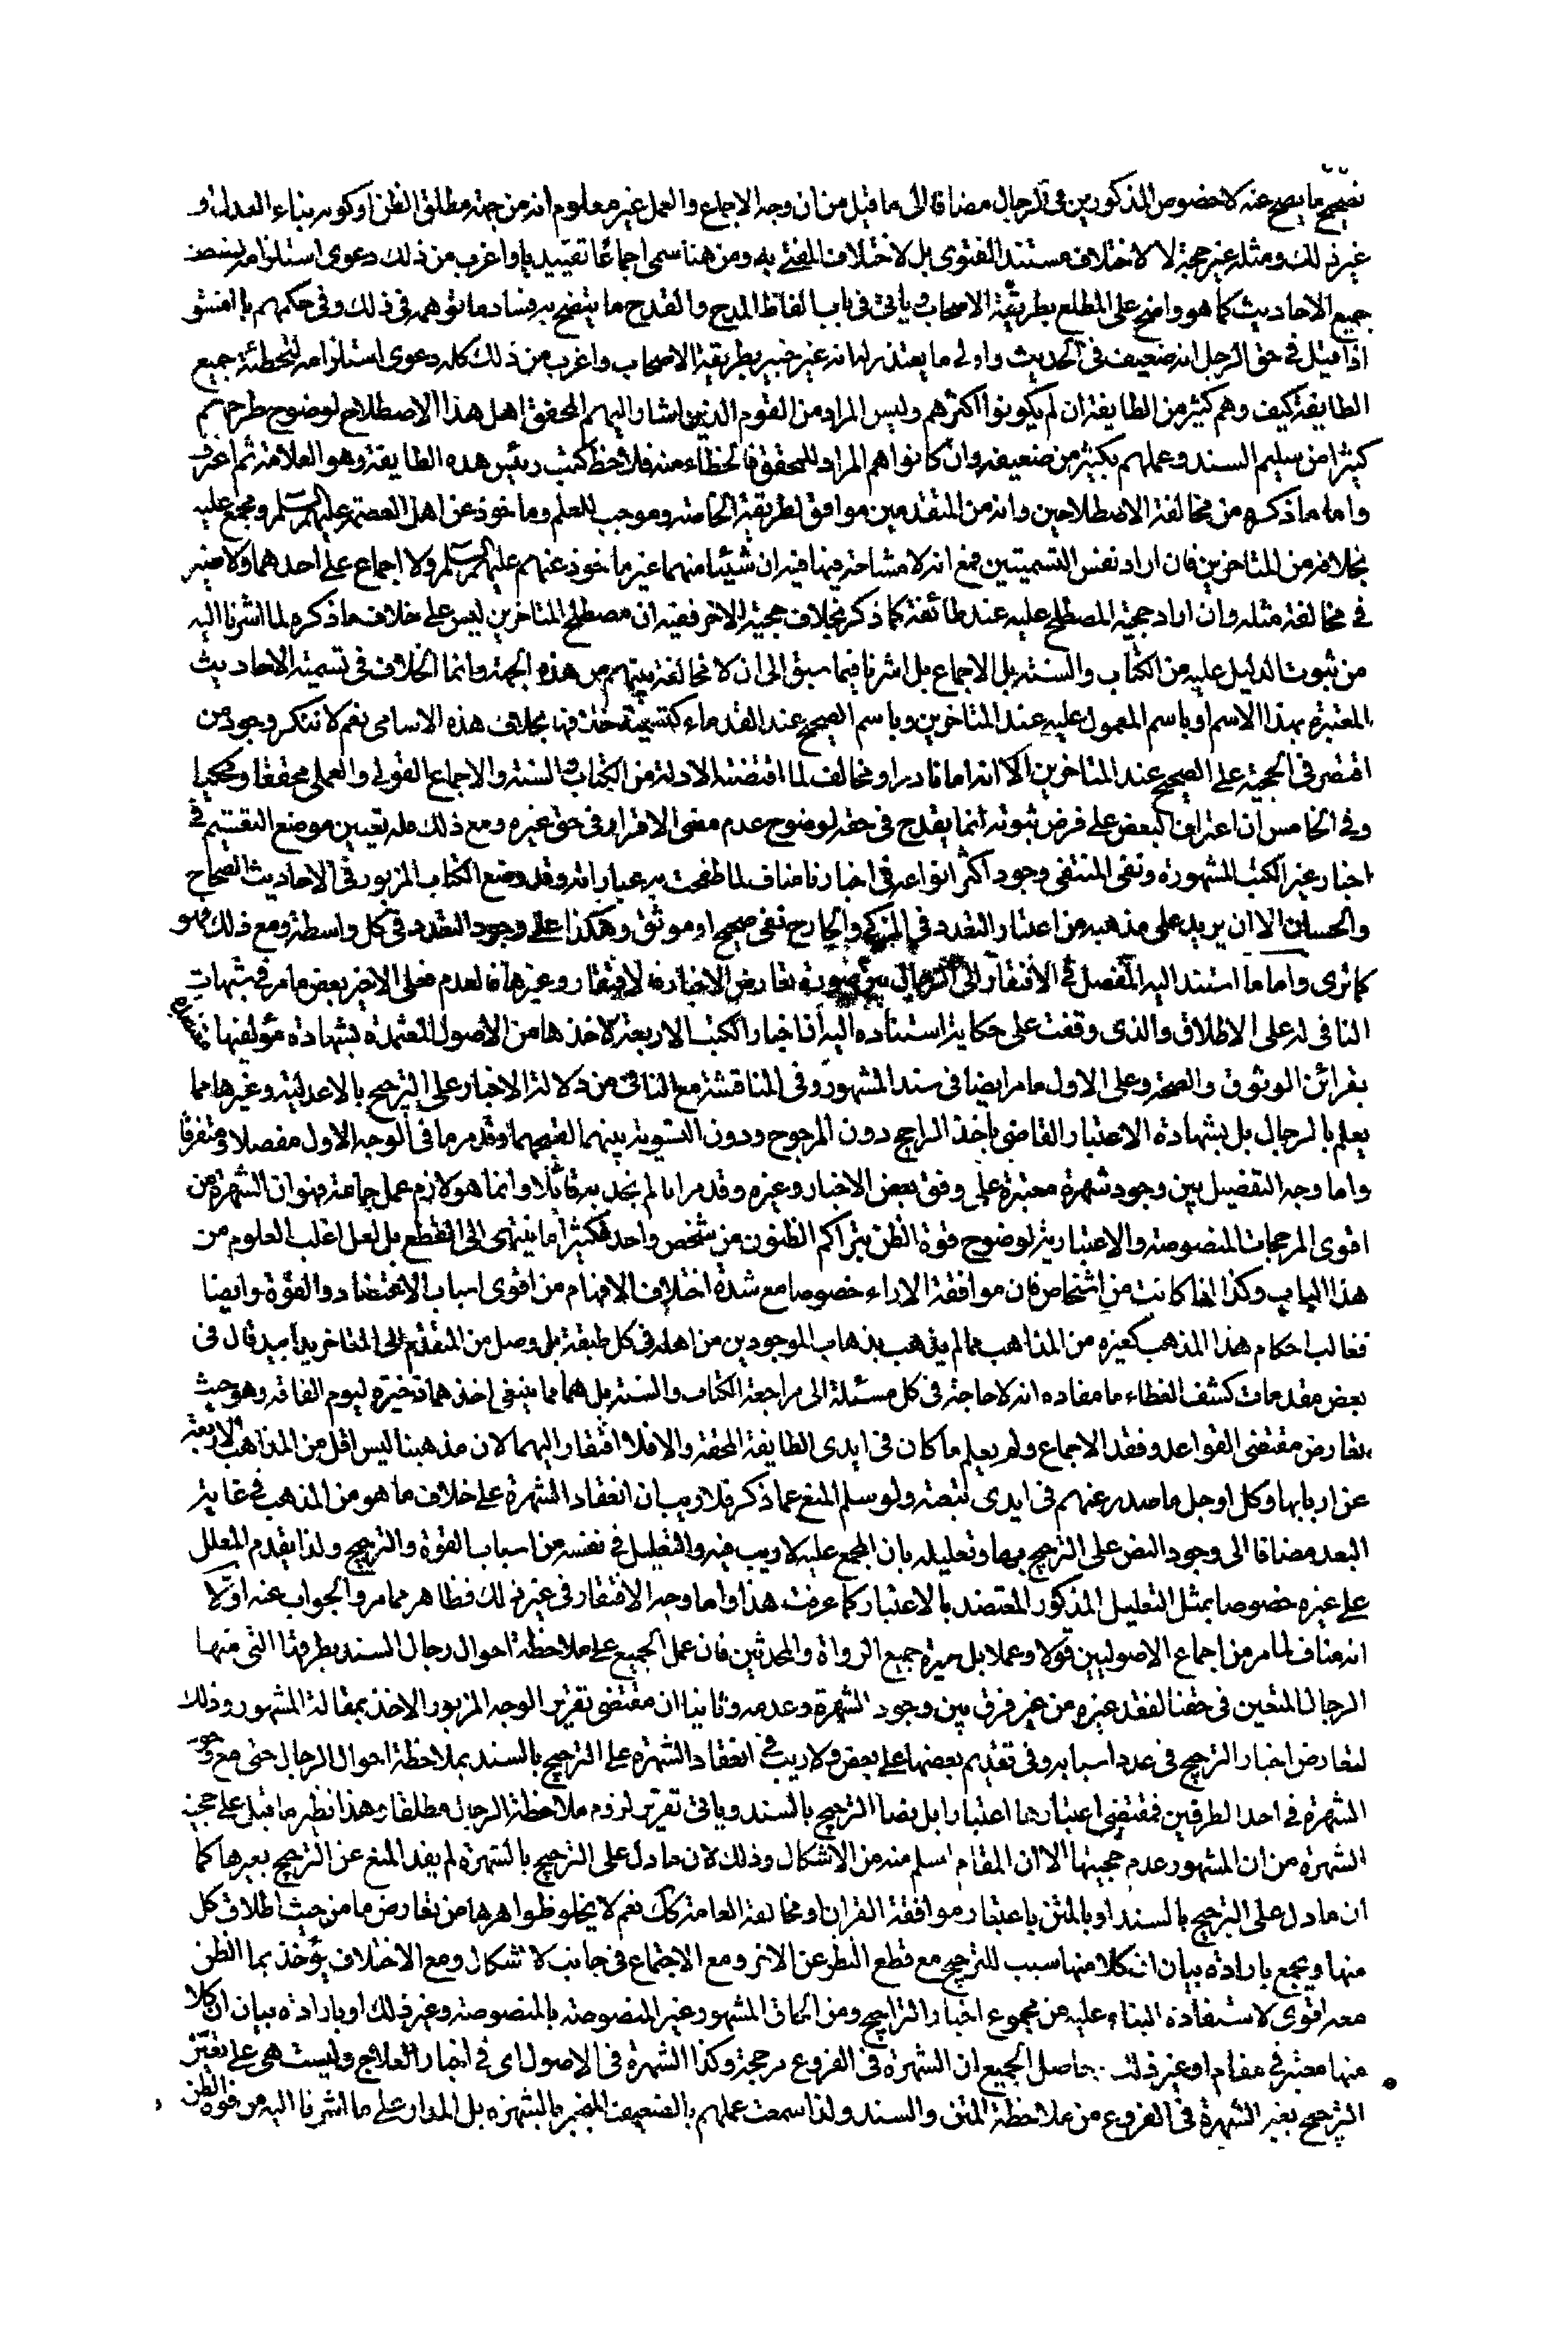 تصحيح ما يصح عنه لا خصوص المذكورين في الرجال مضافا الى ما قيل من ان وجه الاجماع والعمل غير معلوم انه من جهة مطلق الظن او كونه بناء العدالة او
غير ذلك ومثله غير حجة لا لاختلاف مستند الفتوى بل لاختلاف المفتى به ومن هنا سمى اجماعا تقييديا واغرب من ذلك دعوى استلزامه لضعف
جميع الاحاديث كما هو واضح على المطلع بطريقة الاصحاب ويأتي في باب الفاظ المدح والقدح ما يتضح به فساد ما توهمه في ذلك وفي حكمهم بالفسق
اذا قيل في حق الرجل انه ضعيف في الحديث واولى ما يعتذر له انه غير خبير بطريقة الاصحاب واغرب من ذلك كله دعوى استلزامه لتخطئة جميع
الطايفة كيف وهم كثير من الطايفة ان لم يكونوا اكثرهم وليس المراد من القوم الذين اشار اليهم المحقق اهل هذا الاصطلاح لوضوح طرحهم
كثيرا من سليم السند وعملهم بكثير من ضعيفه وان كانوا هم المراد للمحقق فالخطاء منه فلاحظ كتب رئيس هذه الطايفة وهو العلامة ثم اعترف
واما ما ذكره من مخالفة الاصطلاحين وانه من المتقدمين موافق لطريقة الخاصة وموجب للعلم وماخوذ عن اهل العصمة عليهم السلم ومجمع عليه
بخلافه من المتاخرين فان اراد نفس التسميتين فمع انه لا مشاحة فيها فيه ان شيئا منهما غير ماخوذ عنهم عليهم السلم ولا اجماع على احدهما ولا ضير
في مخالفة مثله وان اراد حجية المصطلح عليه عند طائفة كما ذكر بخلاف حجية الاخر ففيه ان مصطلح المتاخرين ليس على خلاف ما ذكره لما اشرنا اليه
من ثبوت الدليل عليه من الكتاب والسنة بل الاجماع بل اشرنا فيما سبق الى ان لا مخالفة بينهم من هذه الجهة وانما الخلاف في تسمية الاحاديث
المعتبرة بهذا الاسم او باسم المعمول عليه عند المتاخرين وباسم الصحيح عند القدماء فيها بخلاف هذه الاسامى نعم لا ننكر وجود من
اقتصر في الحجية على الصحيح عند المتاخرين الا انه اما نادر او مخالف لما اقتضته الادلة من الكتاب والسنة والاجماع القولي والعملي محققا ومحكيا
وفي الخامس ان اعتراف البعض على فرض ثبوته انما يقدح في حقه لوضوح عدم مضى الاقرار في حق غيره ومع ذلك فله تعيين موضع التقسيم في
اخبار غير الكتب المشهورة ونفى المنتقى وجود اكثر انواعه في اخبارنا مناف لما طفحت به عباراته وقد وضع الكتاب المزبور في الاحاديث الصحاح
والحسان الا ان يريد على مذهبه من اعتبار التعدد في المزكي والجارح نفى صحيح او موثق وهكذا على وجود التعدد في كل واسطة ومع ذلك فهو
كما ترى واما ما استند اليه المفصل في الافتقار الى الرجال بين صورة تعارض الاخبار فالافتقار وغيرها فالعدم فعلى الاخير بعض ما مر في شبهات
النافى له على الاطلاق والذى وقفت على حكاية استناده اليه ان اخبار الكتب الاربعة لاخذها من الاصول المعتمدة بشهادة مؤلفيها
بقرائن الوثوق والصحة وعلى الاول ما مر ايضا في سند المشهور وفى المناقشة مع النافى من دلالة الاخبار على الترجيح بالاعدلية وغيرها مما
يعلم بالرجال بل بشهادة الاعتبار القاضى باخذ الراجح دون المرجوح ودون التسوية بينهما لقبحهما وقد مر ما فى الوجه الاول مفصلا ومتفرقا
واما وجه التفصيل بين وجود شهرة معتبرة على وفق بعض الاخبار وغيره وقد مر انا لم نجد به قائلا وانما هو لازم عمل جماعة فهو ان الشهرة من
اقوى المرجحات المنصوصة والاعتبارية لوضوح قوة الظن بتراكم الظنون من شخص واحد فكثيرا ما ينتهى الى القطع بل لعل اغلب العلوم من
هذا الباب وكذا اذا كانت من اشخاص فان موافقة الاراء خصوصا مع شدة اختلاف الافهام من اقوى اسباب الاعتضاد والقوة وايضا
فغالب احكام هذا المذهب كغيره من المذاهب مما لم يذهب بذهاب الموجودين من اهله في كل طبقة بل وصل من المتقدم الى المتاخر يدا بيد قال فى
بعض مقدمات كشف الغطاء ما مفاده انه لا حاجة في كل مسئلة الى مراجعة الكتاب والسنة بل هما مما ينبغى اخذهما ذخيرة ليوم الفاقة وهو حيث
تعارض مقتضى القواعد وفقد الاجماع ولم يعلم ما كان في ايدى الطايفة المحقة والا فلا افتقار اليهما لان مذهبنا ليس اقل من المذاهب الاربعة
عن اربابها وكل او جل ما صدر عنهم في ايدى تبعته ولو سلم المنع عما ذكر فلا ريب ان انعقاد الشهرة على خلاف ما هو من المذهب في غاية
البعد مضافا الى وجود النص على الترجيح بها وتعليله بان المجمع عليه لا ريب فيه والتعليل في نفسه من اسباب القوة والترجيح ولذا يقدم المعلل
على غيره خصوصا بمثل التعليل المذكور المعتضد بالاعتبار كما عرفت هذا واما وجه الافتقار في غير ذلك فظاهر مما مر والجواب عنه اولا
انه مناف لما مر من اجماع الاصوليين قولا وعملا بل سيرة جميع الرواة والمحدثين فان عمل الجميع على ملاحظة احوال رجال السند بطرقها التى منها
الرجال المتعين فى حقنا لفقد غيره من غير فرق بين وجود الشهرة وعدمه وثانيا ان مقتضى تقرير الوجه المزبور الاخذ بمقالة المشهور وذلك
لتعارض اخبار الترجيح فى عدد اسبابه وفى تقديم بعضها على بعض ولا ريب فى انعقاد الشهرة على الترجيح بالسند بملاحظة احوال الرجال حتى مع وجود
الشهرة فى احد الطرفين فمقتضى اعتبارها اعتبارا بل نصا الترجيح بالسند وياتى تقرير لزوم ملاحظة الرجال مطلقا وهذا نظير ما قيل على حجية
الشهرة من ان المشهور عدم حجيتها الا ان المقام اسلم منه من الاشكال وذلك لان ما دل على الترجيح بالشهرة لم يفد المنع عن الترجيح بغيرها كما
ان ما دل على الترجيح بالسند او بالمتن باعتبار موافقة القران او مخالفة العامة كك نعم لا يخلو ظواهرها من تعارض ما من حيث اطلاق كل
منها ويجمع بارادة بيان ان كلا منها سبب للترجيح مع قطع النظر عن الاخر ومع الاجتماع في جانب لا اشكال ومع الاختلاف يؤخذ بما الظن
معه اقوى لاستفادة البناء عليه من مجموع اخبار التراجيح ومن الحاق المشهور غير المنصوصة بالمنصوصة وغير ذلك او بارادة بيان ان كلا
منها معتبر في مقام او غير ذلك حاصل الجميع ان الشهرة في الفروع مرجحة وكذا الشهرة فى الاصول اى في اخبار العلاج وليست هى على تعين
الترجيح بغير الشهرة فى الفروع من ملاحظة المتن والسند ولذا سمعت عملهم بالضعيف المنجبر بالشهرة بل المدار على ما اشرنا اليه من قوة الظن